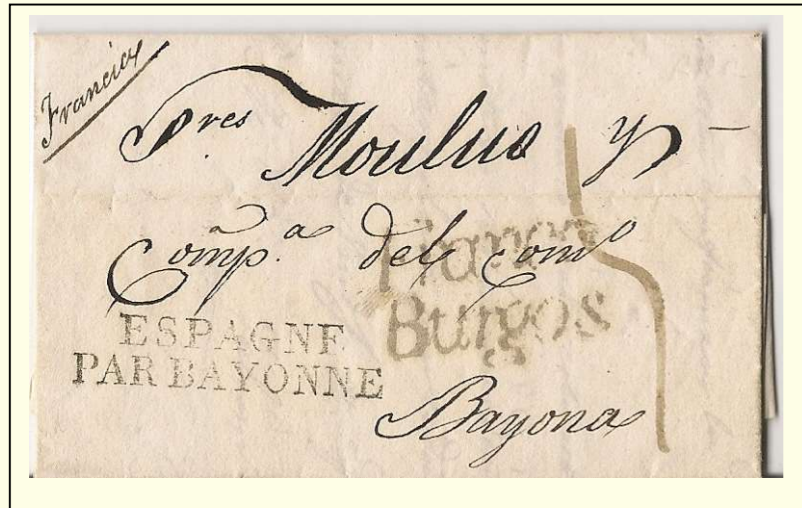 Francia
Sres Moulus y
Compa. del como
Franco
Burgos
ESPAGNE
PAR BAYONNE
Bayona